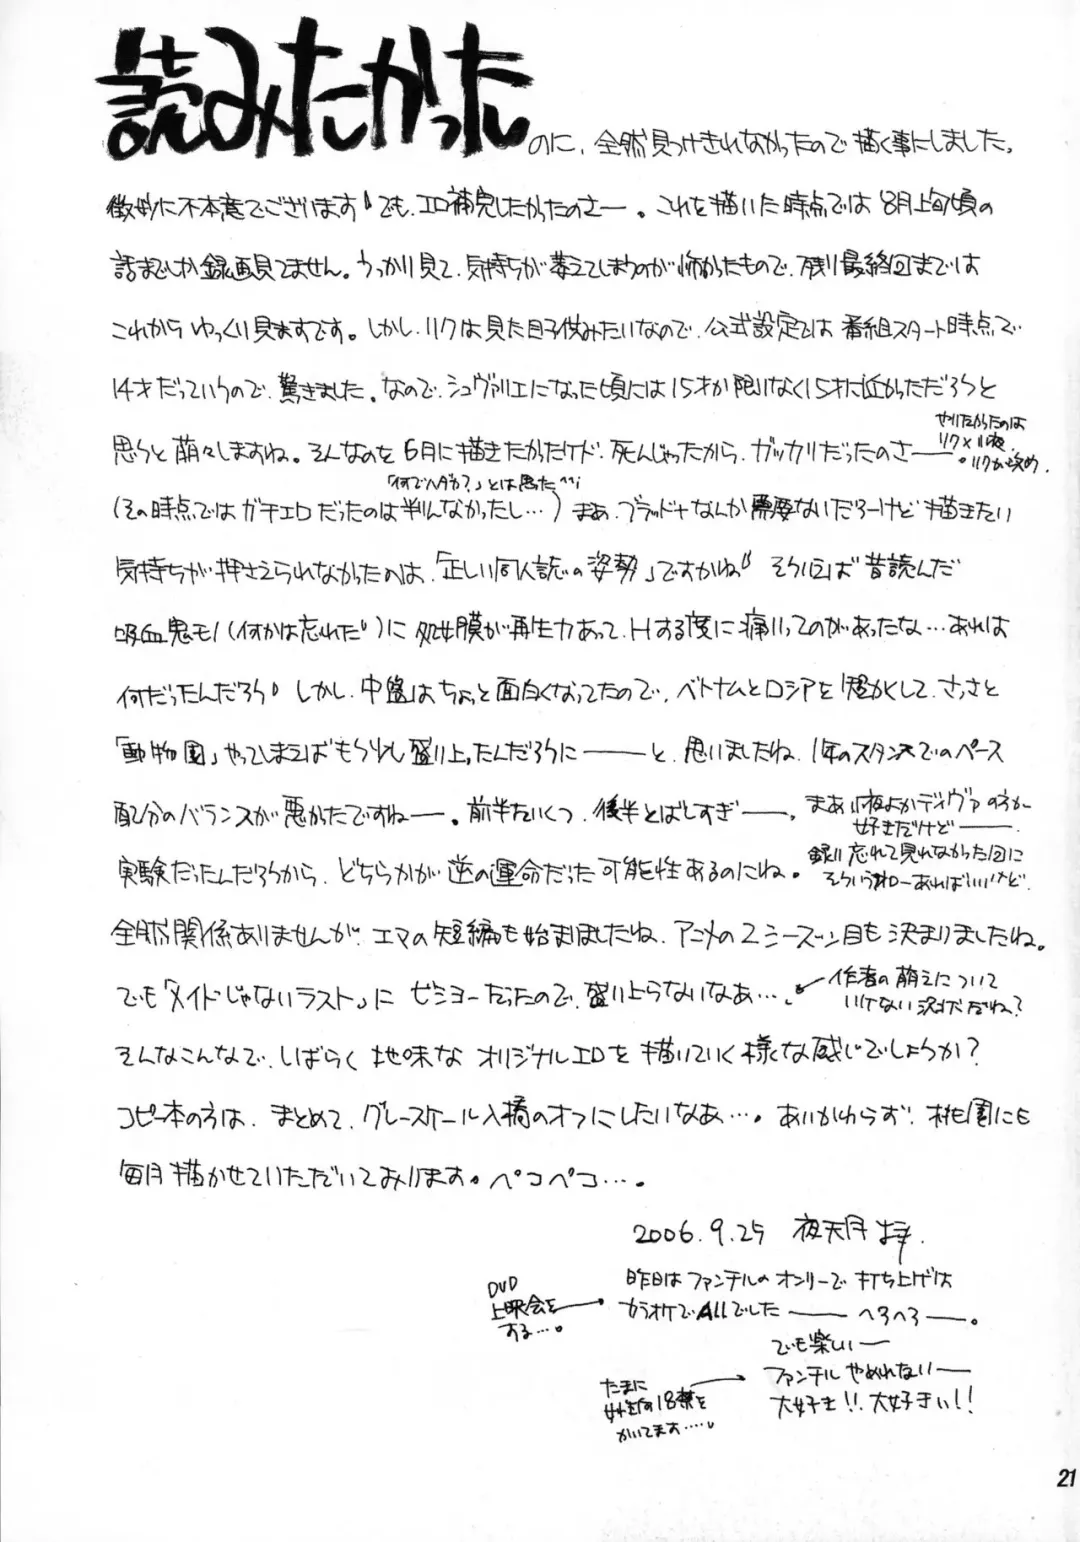 読みたかった
のに、全然見つけきれなかったので描く事にしました。
微妙に不本意でございます〃でも、エロ補完したかったのさー。これを描いた時点では8月上旬頃の
話までしか録画見てません。うっかり見て、気持ちが萎えてしまうのが怖かったもので、残り最終回までは
これからゆっくり見ますです。しかし、リクは見た目子供みたいなので、公式設定では番組スタート時点で
14才だっていうので、驚きました。なので、シュヴァリエになった頃には15才か限りなく15才に近かっただろうと
やりたかったのは
リク×小夜。
。リクが攻め。
思うと萌々しますね。そんなのを6月に描きたかったけど、死んじゃったから、ガッカリだったのさー
「何でハダカ?」とは思った^^;
(その時点ではガチエロだったのは判んなかったし…)まぁ、ブラッド+なんか需要ないだろーけど描きたい
気持ちが押さえられなかったのは、「正しい同人誌の姿勢」ですかね〃そういえば昔読んだ
吸血鬼モノ(何かは忘れた〃)に処女膜が再生力あって、Hする度に痛いってのがあったな…あれは
何だったんだろう〃しかし、中盤はちょっと面白くなってたので、ベトナムとロシアを短かくして、さっさと
「動物園」やってしまえばもう少し盛り上ったんだろうに――と、思いましたね、1年のスタンスでのペース
配分のバランスが悪かったですねー。前半たいくつ、後半とばしすぎ――。
まあ小夜よかディヴァの方が
好きだけどー
実験だったんだろうから、どちらかが逆の運命だった可能性あるのにね。
録り忘れて見れなかった回に
そういうネローあればいいけど。
全然関係ありませんが、エマの短編も始まりましたね、アニメの2シーズン目も決まりましたね。
でも「メイドじゃないラスト」にゼショーだったので、盛り上らないなあ…。
作者の萌えについて
いけない状況だね?
そんなこんなで、しばらく地味なオリジナルエロを描いていく様な感じでしょうか?
コピー本の方は、まとめて、グレースケール入稿のオフにしたいなあ…。あいかわらず、桃園にも
毎月描かせていただいております。ペコペコ…。
2006.9.25 夜天月
昨日はファンテルのオンリーで打ち上げは
カラオケでAllでした――へろへろー。
DVD
上映会を
する…。
でも楽しいー
ファンテルやめれないー
大好き!!大好きぃ!!
たまに
女性向18禁を
かいてます……。
21